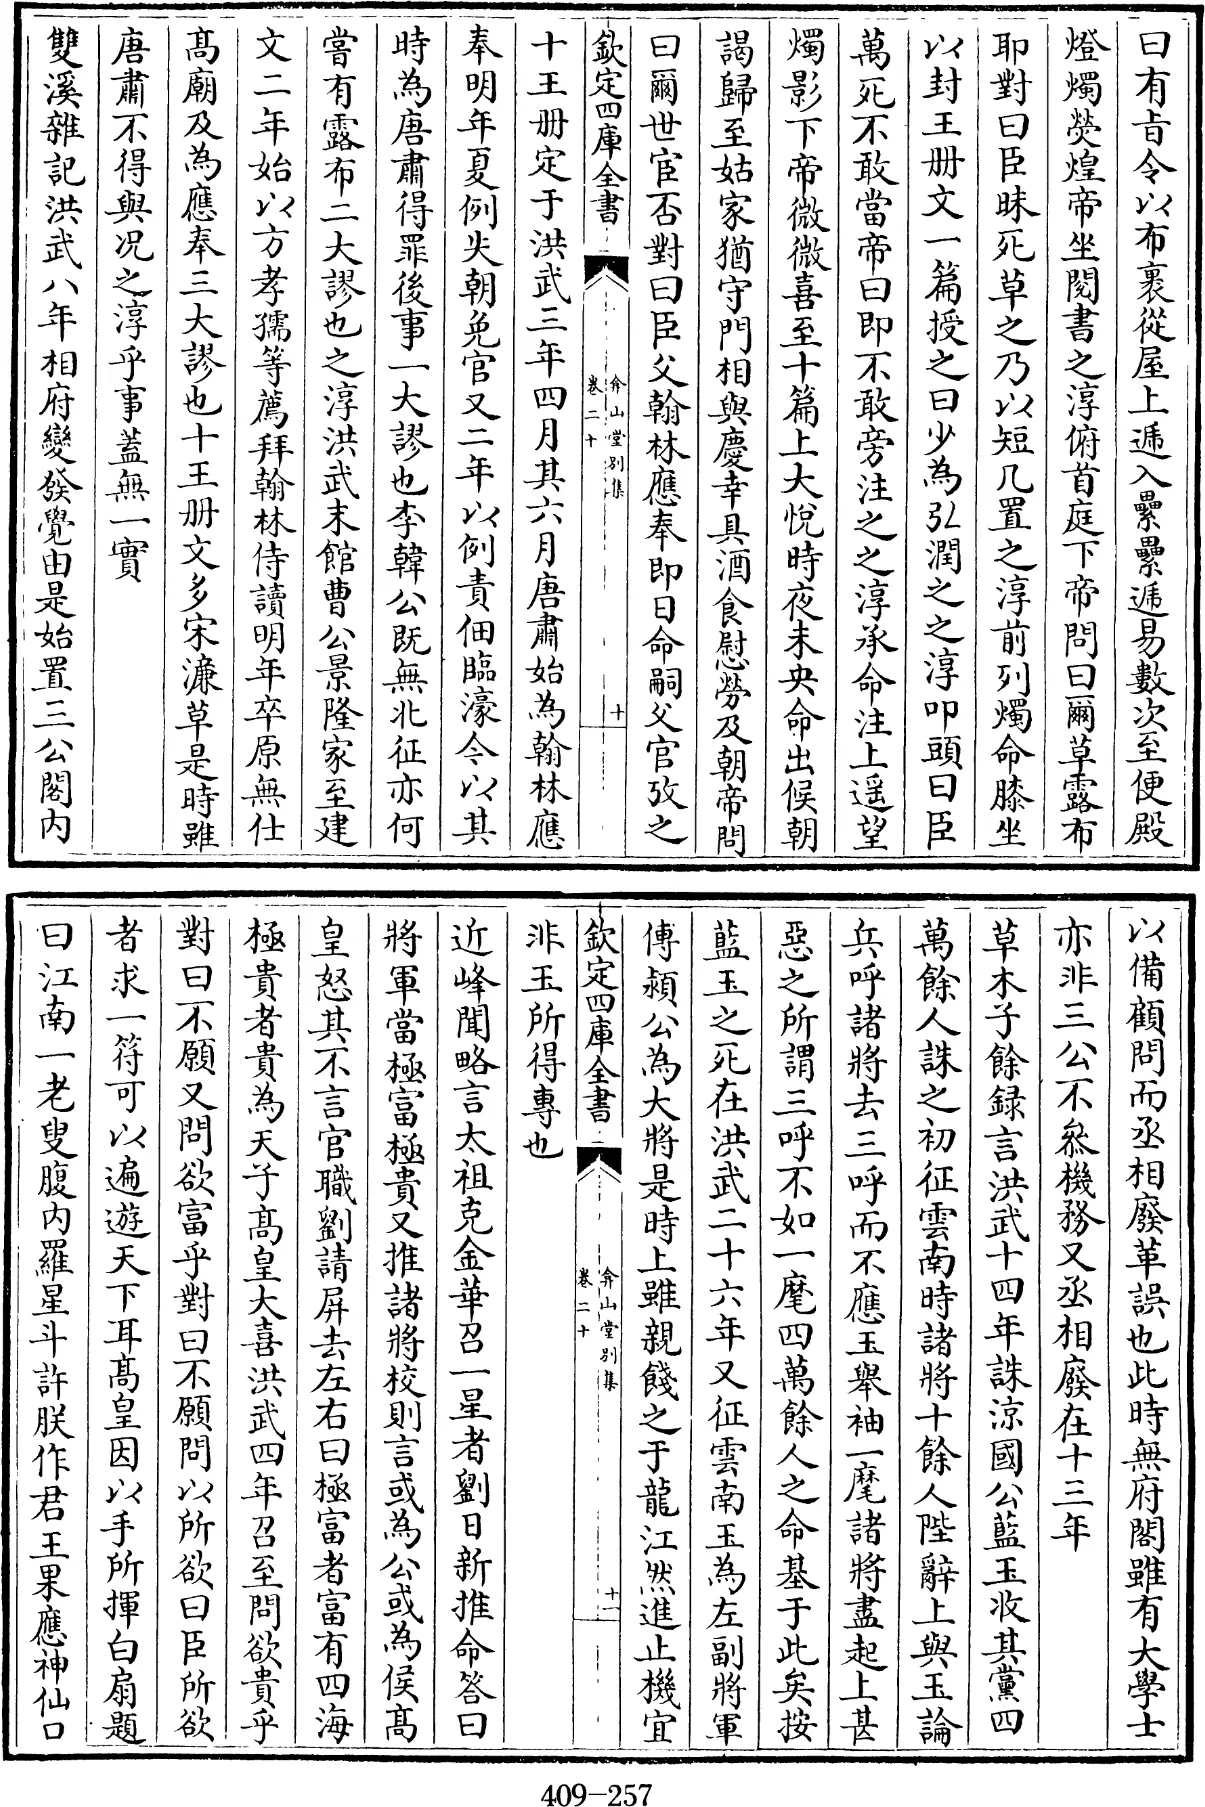 曰有旨令以布裹從屋上遞入纍纍遞易數次至便殿
燈燭熒煌帝坐閱書之淳俯首庭下帝問曰爾草露布
耶對曰臣昧死草之乃以短几置之淳前列燭命膝坐
以封王册文一篇授之曰少為弘潤之之淳叩頭曰臣
萬死不敢當帝曰即不敢旁注之之淳承命注上遥望
燭影下帝微微喜至十篇上大悅時夜未央命出候朝
謁歸至姑家猶守門相與慶幸具酒食慰勞及朝帝問
曰爾世宦否對曰臣父翰林應奉即日命嗣父官攷之
欽定四庫全書
弇山堂别集
卷二十
十
十王册定于洪武三年四月其六月唐肅始為翰林應
奉明年夏例失朝免官又二年以例責佃臨濠令以其
時為唐肅得罪後事一大謬也李韓公既無北征亦何
嘗有露布二大謬也之淳洪武末館曹公景隆家至建
文二年始以方孝孺等薦拜翰林侍讀明年卒原無仕
髙廟及為應奉三大謬也十王册文多宋濂草是時雖
唐肅不得與况之淳乎事蓋無一實
雙溪雜記洪武八年相府變發覺由是始置三公閣内
以備顧問而丞相廢革誤也此時無府閣雖有大學士
亦非三公不叅機務又丞相廢在十三年
草木子餘録言洪武十四年誅涼國公藍玉收其黨四
萬餘人誅之初征雲南時諸將十餘人陛辭上與玉論
兵呼諸將去三呼而不應玉舉袖一麾諸將盡起上甚
惡之所謂三呼不如一麾四萬餘人之命基于此矣按
藍玉之死在洪武二十六年又征雲南玉為左副將軍
傅潁公為大將是時上雖親餞之于龍江然進止機宜
欽定四庫全書
弇山堂别集
卷二十
十一
非玉所得專也
近峰聞略言太祖克金華召一星者劉日新推命答曰
將軍當極富極貴又推諸將校則言或為公或為侯髙
皇怒其不言官職劉請屏去左右曰極富者富有四海
極貴者貴為天子髙皇大喜洪武四年召至問欲貴乎
對曰不願又問欲富乎對曰不願問以所欲曰臣所欲
者求一符可以遍遊天下耳髙皇因以手所揮白扇題
曰江南一老叟腹内羅星斗許朕作君王果應神仙口
409-257